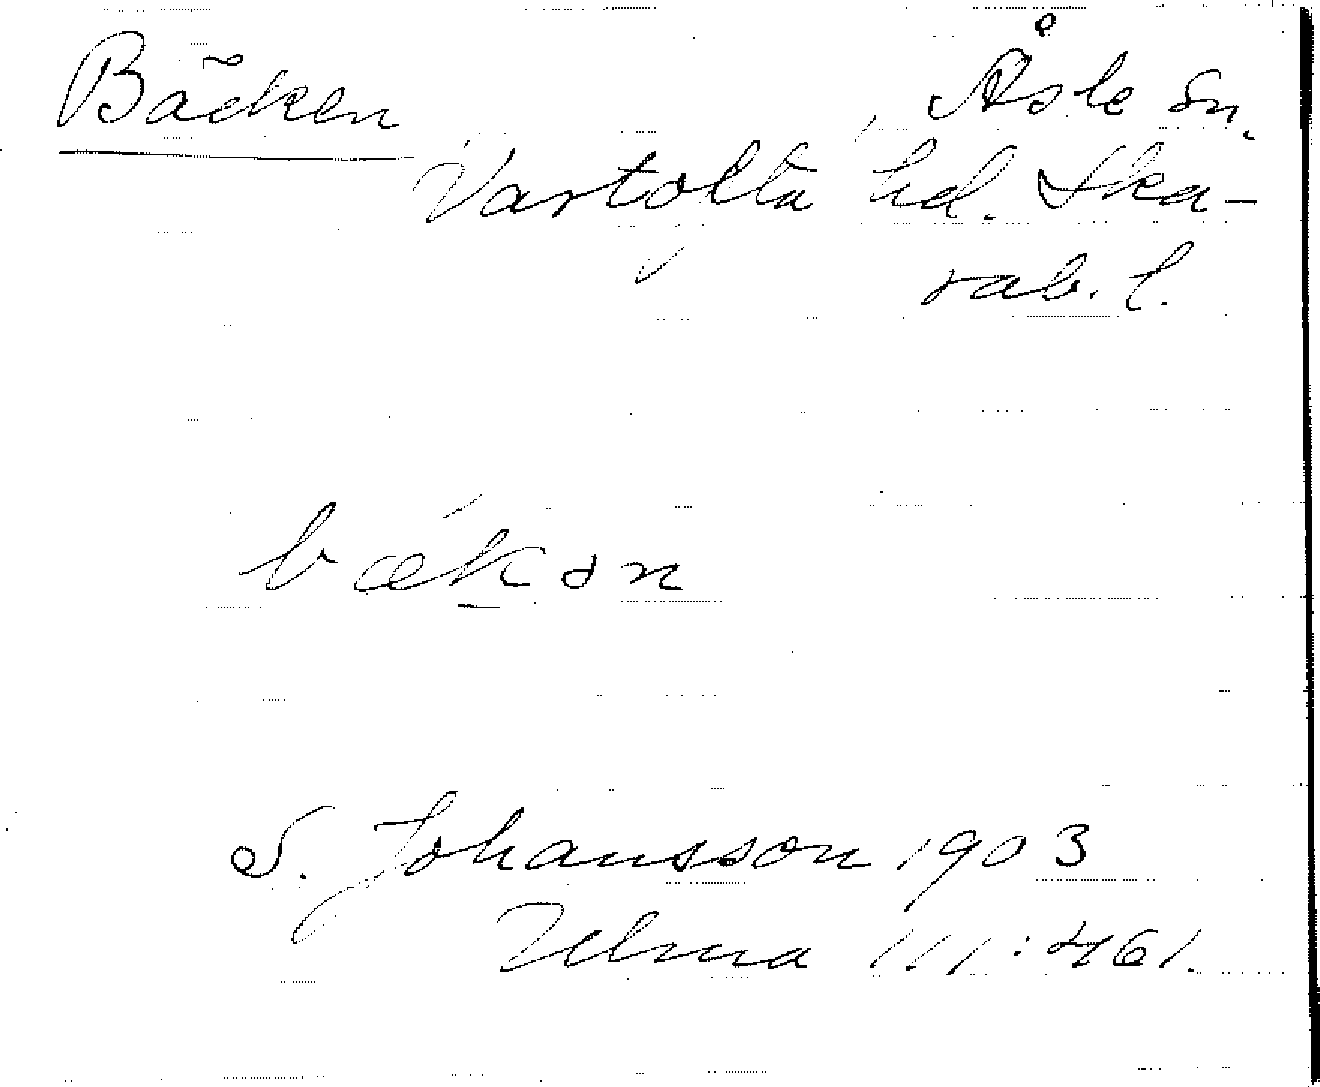 Bäcken , Åsle sn.
Vartofta hd. Ska-
rab. l.
bækən
S. Johansson 1903
Ulma 111:461.